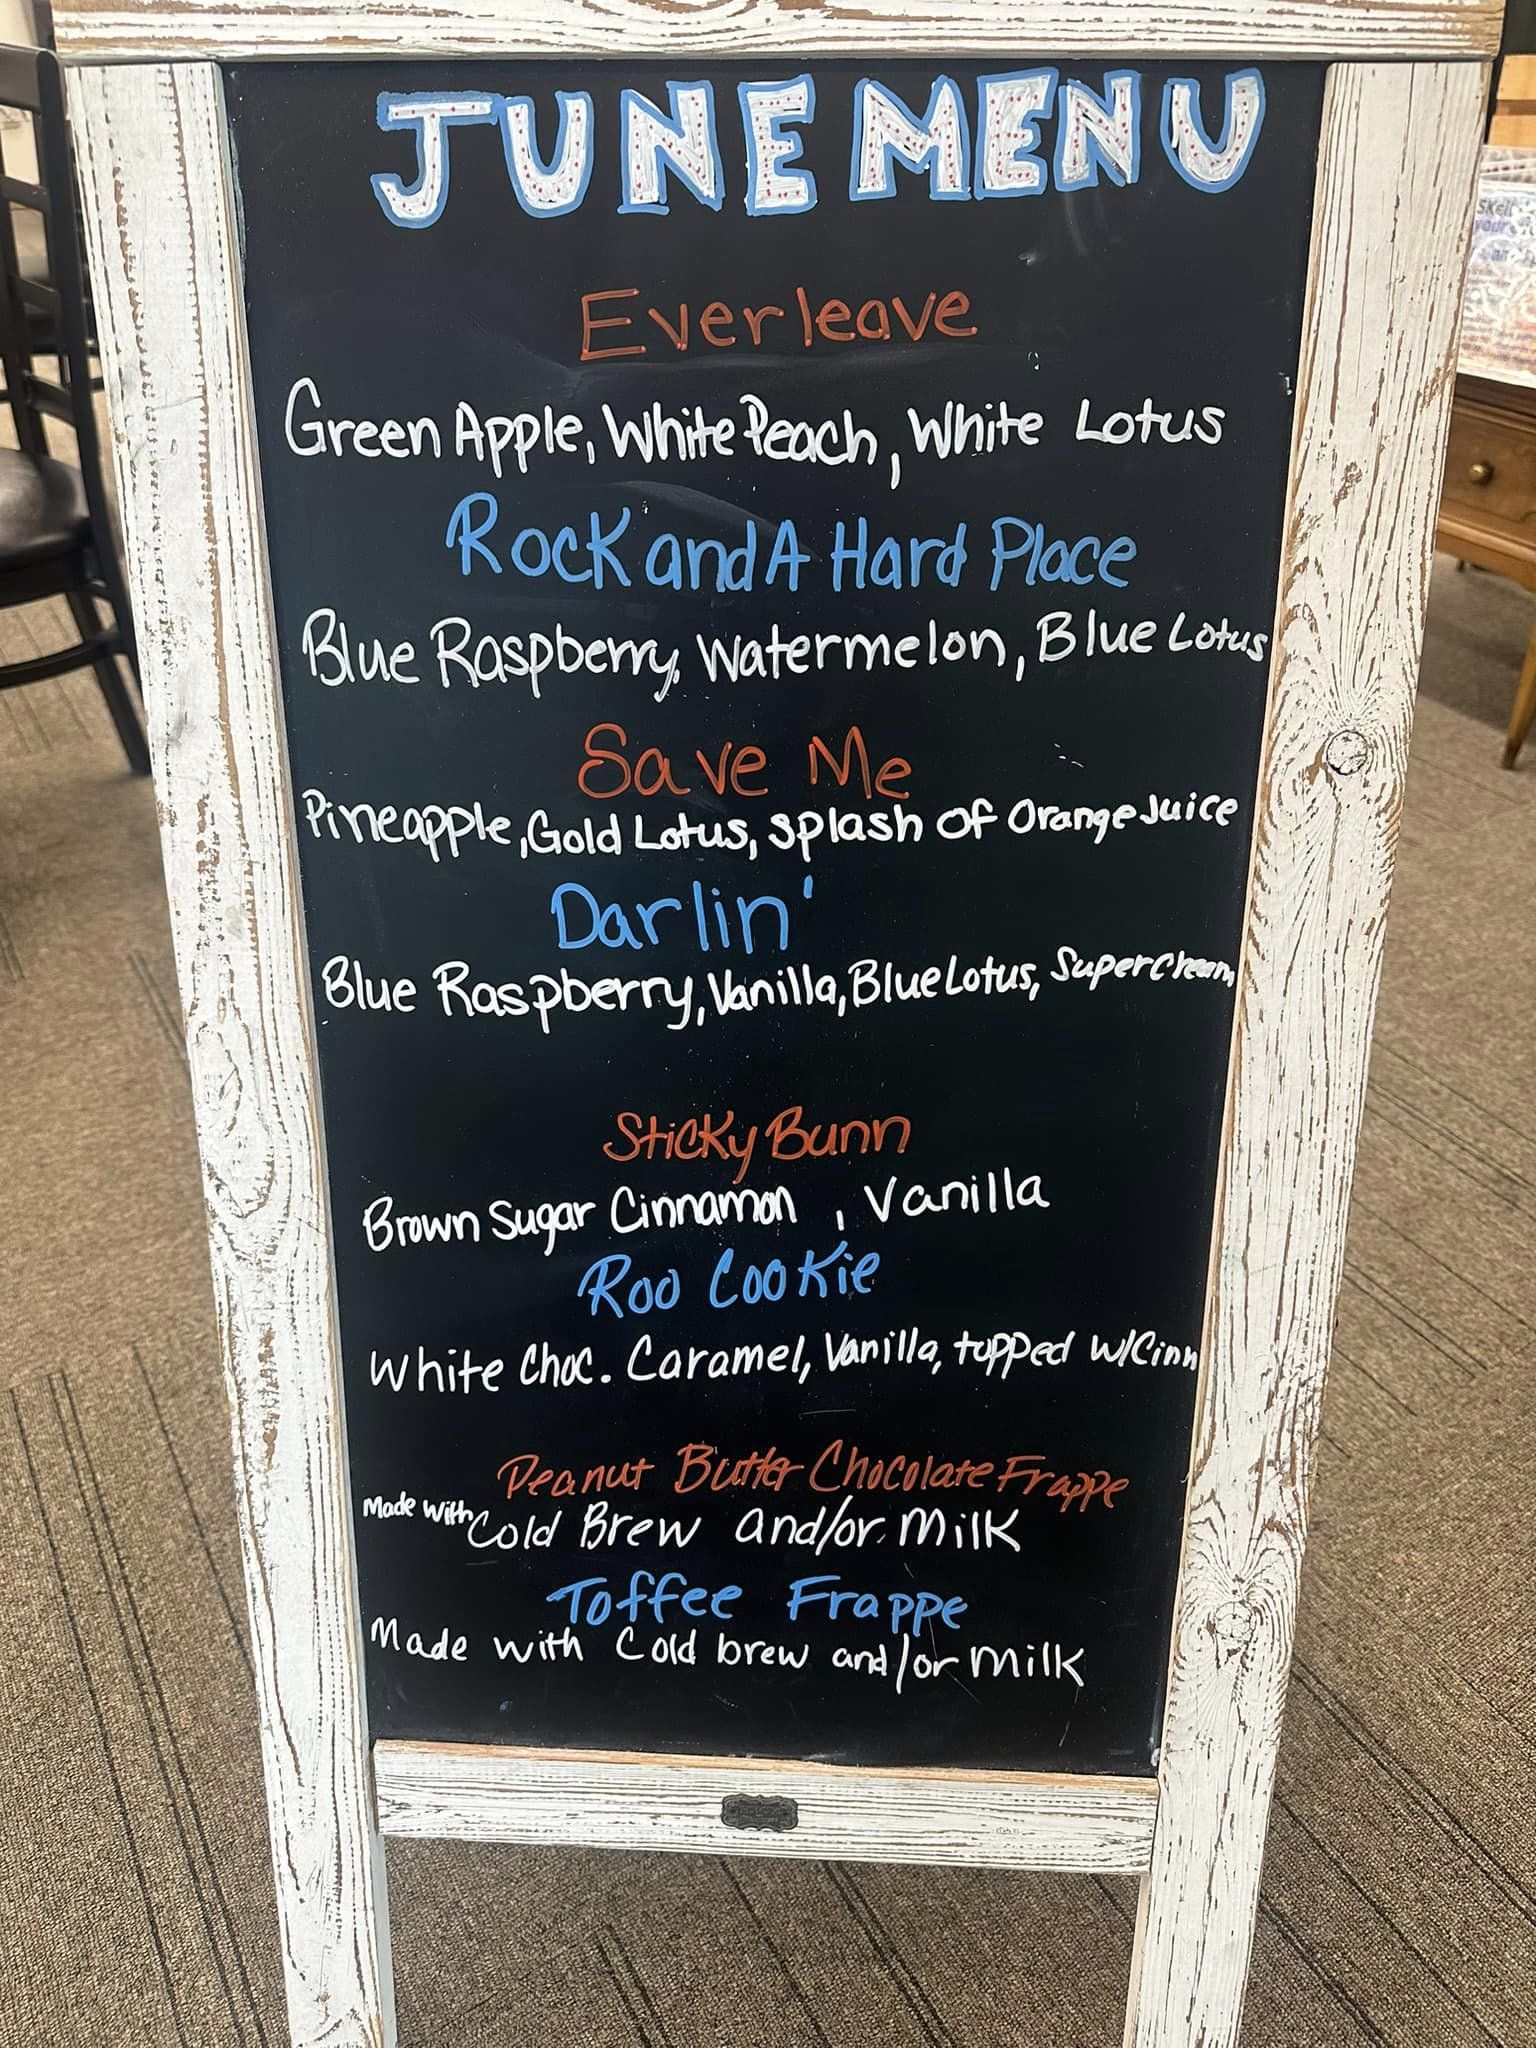 JUNE MENU
Everleave
Green Apple, White Peach, White Lotus
Rock and A Hard Place
Blue Raspberry, Watermelon, Blue Lotus
Save Me
Pineapple, Gold Lotus, splash of Orange Juice
Darlin'
Blue Raspberry, Vanilla, Blue Lotus, Supercream
Sticky Bunn
Brown Sugar Cinnamon, Vanilla
Roo Cookie
White Choc. Caramel, Vanilla, topped w/Cinn
Peanut Butter Chocolate Frappe
Made with Cold Brew and/or Milk
Toffee Frappe
Made with Cold brew and/or Milk